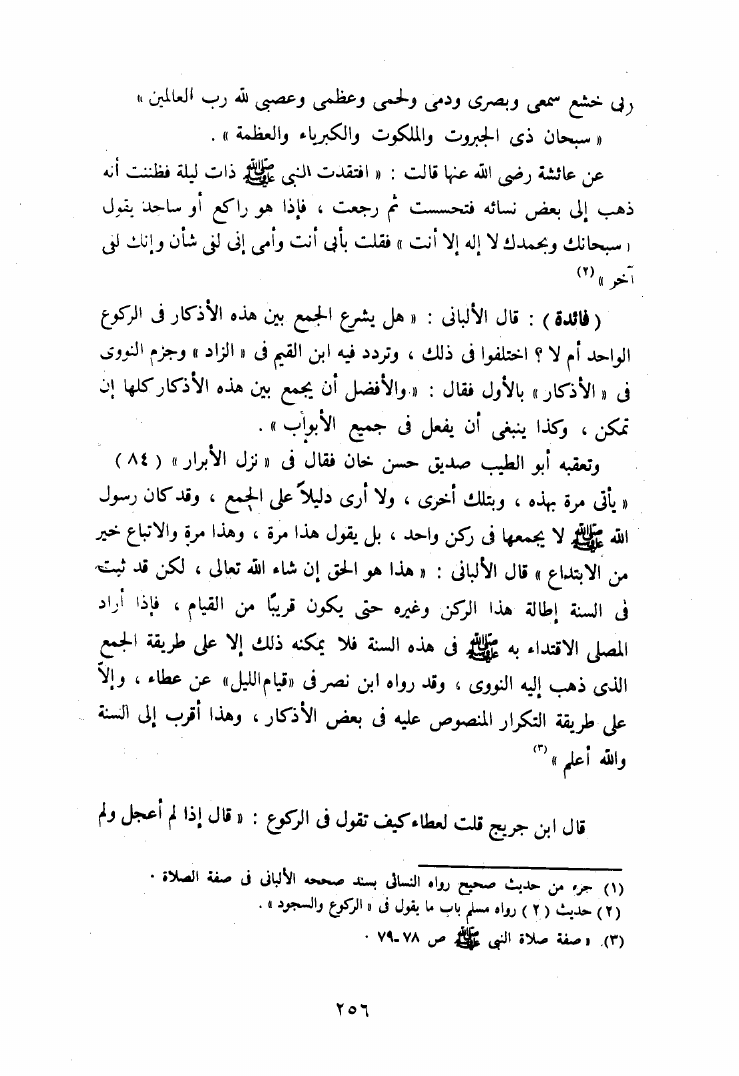 ربى خشع سمعى وبصرى ودمى ولحمى وعظمى وعصبى لله رب العالمين »
« سبحان ذى الجبروت والملكوت والكبرياء والعظمة » .
عن عائشة رضى الله عنها قالت : « افتقدت النبى ﷺ ذات ليلة فظننت أنه
ذهب إلى بعض نسائه فتحسست ثم رجعت ، فإذا هو راكع أو ساجد يقول
« سبحانك وبحمدك لا إله إلا أنت » فقلت بأبى أنت وأمى إنى لفى شأن وإنك لفى
آخر » (٢)
( فائدة ) : قال الألبانى : « هل يشرع الجمع بين هذه الأذكار فى الركوع
الواحد أم لا ؟ اختلفوا فى ذلك ، وتردد فيه ابن القيم فى « الزاد » وجزم النووى
فى « الأذكار » بالأول فقال : « والأفضل أن يجمع بين هذه الأذكار كلها إن
تمكن ، وكذا ينبغى أن يفعل فى جميع الأبواب » .
وتعقبه أبو الطيب صديق حسن خان فقال فى « نزل الأبرار » ( ٨٤ )
« يأتى مرة بهذه ، وبتلك أخرى ، ولا أرى دليلاً على الجمع ، وقد كان رسول
الله ﷺ لا يجمعها فى ركن واحد ، بل يقول هذا مرة ، وهذا مرة والاتباع خير
من الابتداع » قال الألبانى : « هذا هو الحق إن شاء الله تعالى ، لكن قد ثبت
فى السنة إطالة هذا الركن وغيره حتى يكون قريبًا من القيام ، فإذا أراد
المصلى الاقتداء به ﷺ فى هذه السنة فلا يمكنه ذلك إلا على طريقة الجمع
الذى ذهب إليه النووى ، وقد رواه ابن نصر فى «قيام الليل» عن عطاء ، وإلاّ
على طريقة التكرار المنصوص عليه فى بعض الأذكار ، وهذا أقرب إلى السنة
والله أعلم » (٣)
قال ابن جريج قلت لعطاء كيف تقول فى الركوع : « قال إذا لم أعجل ولم
(١) جزء من حديث صحيح رواه النسائى بسند صححه الألبانى فى صفة الصلاة .
(٢) حديث ( ٢ ) رواه مسلم باب ما يقول فى « الركوع والسجود » .
(٣) . « صفة صلاة النبى ﷺ ص ٧٨-٧٩ .
٢٥٦